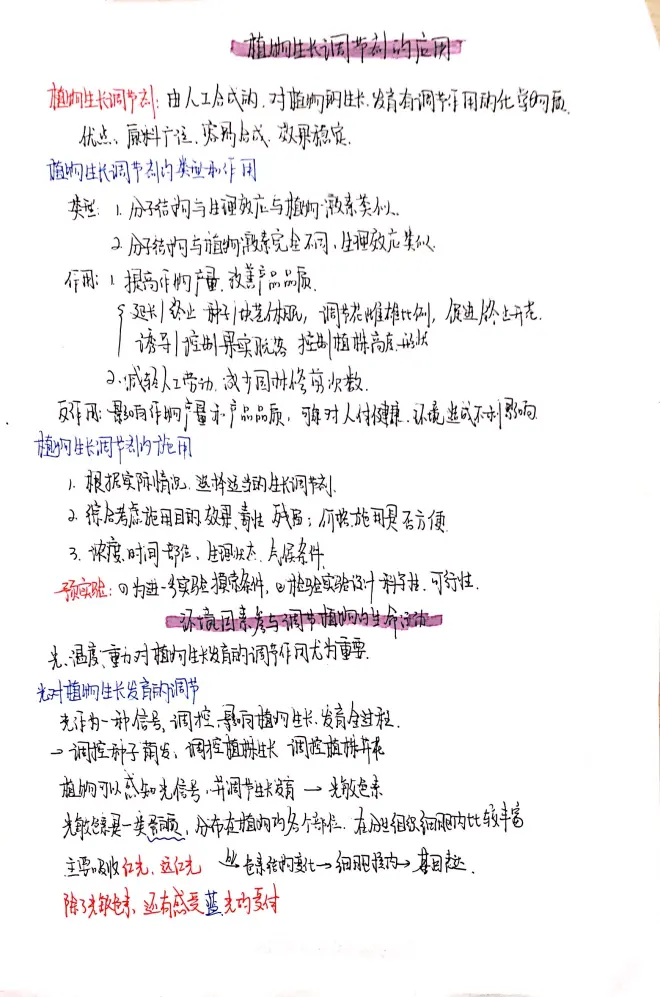 植物生长调节剂的应用
植物生长调节剂:由人工合成的,对植物的生长、发育有调节作用的化学物质.
优点、原料广泛、容易合成、效果稳定.
植物生长调节剂的类型和作用
类型: 1. 分子结构与生理效应与植物激素类似.
2. 分子结构与植物激素完全不同,生理效应类似.
作用: 1. 提高作物产量、改善产品品质.
延长/终止 种子/块茎休眠, 调节花雌雄比例, 促进 开花.
诱导/控制果实脱落 控制植株高度、形状
2. 减轻人工劳动、减少园林修剪次数.
反作用: 影响作物产量和产品品质, 可能对人体健康、环境造成不利影响
植物生长调节剂的施用
1. 根据实际情况、选择适当的生长调节剂.
2. 综合考虑施用目的、效果、毒性 残留; 价格、施用是否方便
3. 浓度、时间、部位、生理状态、气候条件
预实验: ①为进一步实验摸索条件, ②检验实验设计科学性、可行性.
环境因素参与调节植物的生命活动
光、温度、重力对植物生长发育的调节作用尤为重要.
光对植物生长发育的调节
光作为一种信号, 调控、影响植物生长、发育全过程.
→ 调控种子萌发, 调控植株生长 调控植株开花
植物可以感知光信号,并调节生长发育 → 光敏色素
光敏色素是一类蛋白质, 分布在植物的各个部位. 在分生组织细胞内比较丰富
主要吸收红光、远红光 色素结构变化→细胞核内→基因表达.
除了光敏色素, 还有感受蓝光的受体